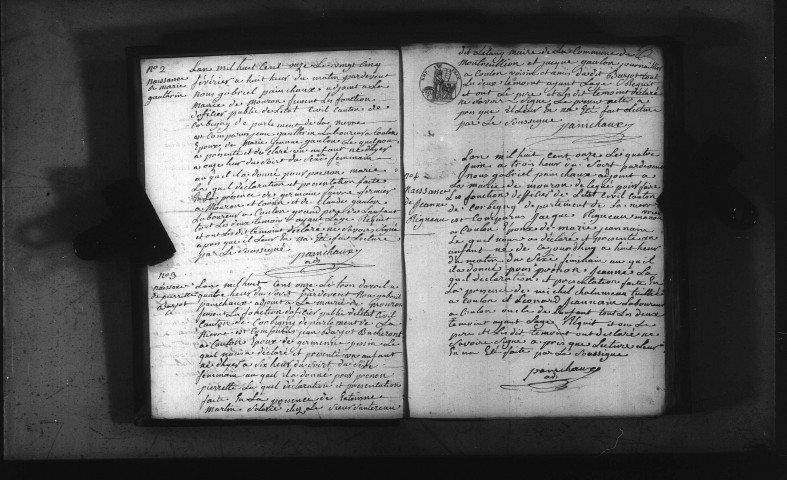 No 2
naissance
de marie
gauthrin
Lan mil huit Cent onze Le vingt Cinq
février a huit heur du matin pardevent
Nous gabriel painchaux adjoint a La
Mairie de Mouron fesent Les fonction
dofitier public de Letat Civil Canton de
Corbigny de partement de la nievre
est Comparu jean gauthrin Laboureur a Coulon
Epoux de Marie jeanne gaulon Le quel nous
a presente et declare un enfant ne dhyer
a onze heur du soir du Sexe feminain
au quel il a donne pour prenon marie
La quel declaration et presentation faite
En La presence de germain favre fermier
a Mouron et Coulon et de Claude gaulon
Laboureur a Coulon grand pere de Lanfant
tout Les deux temoin ayant Lage Requis
et ont Les dit temoint declare ne Savoir Signe
apres que il Leur En na Ete fait Lecture
par Le Soussigne
painchaux
adj
No 3
naissance
de pierrette
Barjot
Lan mil huit Cent onze Le trois davril a
quatre heur du Soir pardevent Nous gabriel
painchaux adjoint a La mairie de Mouron
fesent La fonction dofitier public de Letat Civil
Canton de Corbigny departement de La
Nievre est Comparu jean Barjot
a Coulon Epoux de germenne Le
quel nous a declare et presente un anfant
ne dhyer a Six heur du Soir du Sexe
feminain au quel il a donne pour prenon
pierrette La quel declaration et presentation
fait En La presence de Entoinne
martin Salarie chez Le Sieur
dit Coulon maire de La Commune de
Montreuillon et jacque gaulon journaillier
a Coulon voisin et amis du dit Barjot tout
Les deux temoint ayant Lage Requit
et Le pere et Les dit temoint declare
ne Savoir Signe Le present acte a
pres que il Leur En na Ete fait Lecture
par Le Soussigne
painchaux
no 4
Naissance
de Jeanne
Rigneau
Lan mil huit Cent onze Le quatre
juin a trois heur du Soir pardevent
nous gabriel painchaux adjoint a
La mairie de mouron delegue pour faire
Les fonction dofitier de Letat Civil Canton
de Corbigny departement de La nievre
est Comparus Jacque Rigneau
a Coulon Epoux de marie jeannain
Le quel nous a declare et presente un
enfant ne de ce jourdhuy a huit heur
du matin du Sexe feminain au quel
il a donne pour prenon Jeanne La
quel declaration et presentation faite En
La presence de michel
a Coulon et Leonard Jeannain Laboureur
a Coulon oncle de Lanfant tout Les deux
temoint ayant Lage Requit et ont Le
pere et Les dit temoint ont declare ne
Savoire Signe apres que Lecture Leur
En na Ete faite par Le Soussigne
painchaux
adj